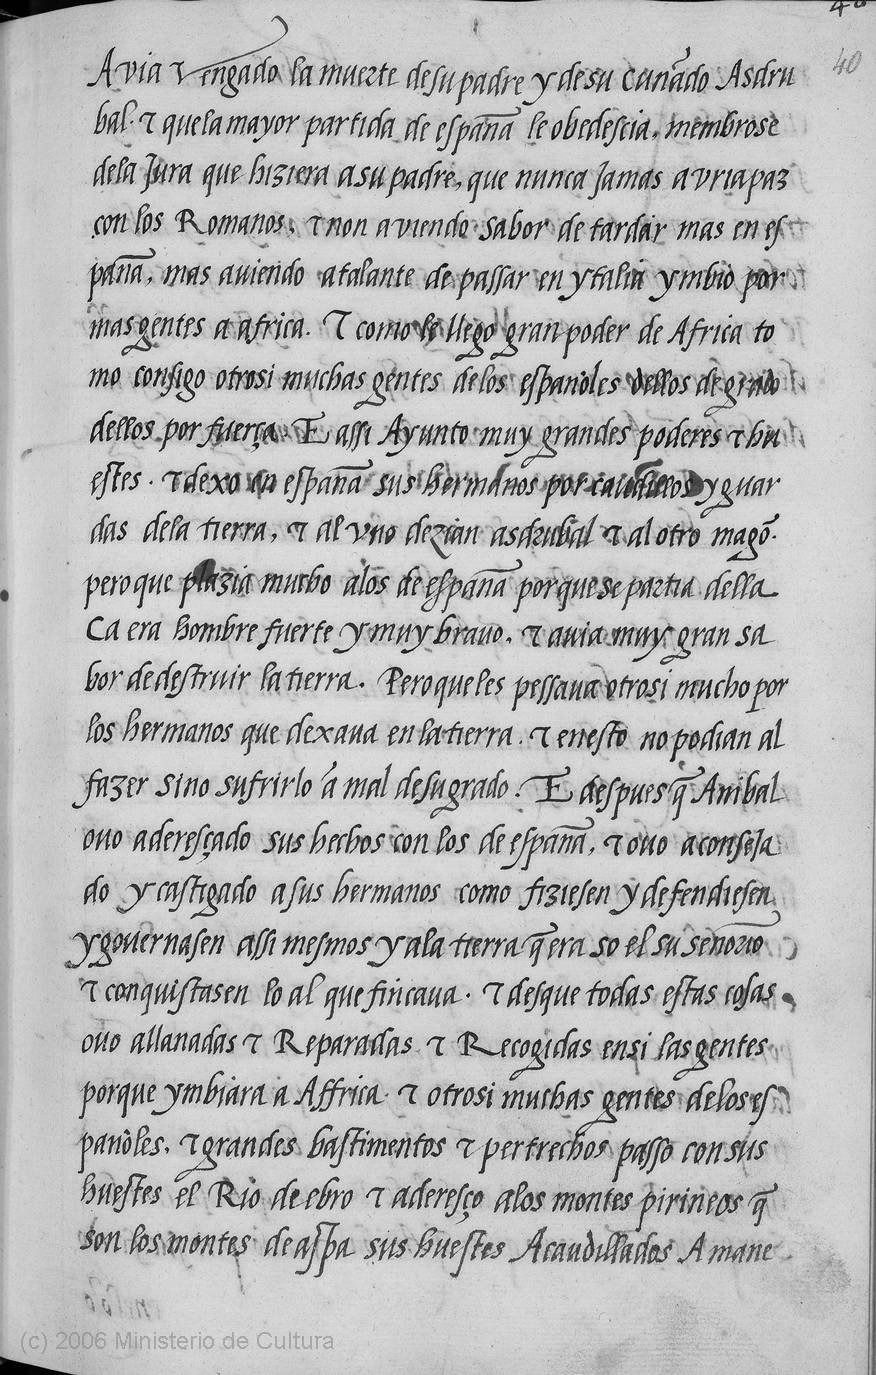 40
40
Avia τ vengado la muerte desu padre y desu cuñado Asdru
bal. τ quela mayor partida de españa le obedescia, membrose
dela Jura que hiziera asu padre, que nunca Jamas avria paz
con los Romanos, τ non aviendo sabor de tardar mas en es
paña, mas auiendo atalante de passar en ytalia ymbio por
mas gentes a africa. τ como le llego gran poder de Africa to
mo consigo otrosi muchas gentes delos españoles dellos de grado
dellos por fuerça. E assi Ayunto muy grandes poderes τ hu
estes. τ dexo en españa sus hermanos por caudillos y guar
das dela tierra, τ al vno dezian asdrubal τ al otro magō.
pero que plazia mucho alos de españa porque se partia della
Ca era hombre fuerte y muy brauo, τ auia muy gran sa
bor de destruir la tierra. Pero que les pessaua otrosi mucho por
los hermanos que dexaua en la tierra. τ enesto no podian al
fazer sino sufrirlo a mal desu grado. E despues q̄ Anibal
ouo aderesçado sus hechos con los de españa, τ ouo aconseja
do y castigado asus hermanos como fiziesen y defendiesen
y gouernasen assi mesmos y ala tierra q̄ era so el su señorio
τ conquistasen lo al que fincaua. τ desque todas estas cosas
ouo allanadas τ Reparadas τ Recogidas ensi las gentes
porque ymbiara a Affrica. τ otrosi muchas gentes delos es
pañoles, τ grandes bastimentos τ pertrechos passo con sus
huestes el Rio de ebro τ aderesço alos montes pirineos q̄
son los montes de aspa sus huestes Acaudilladas A mane
(c) 2006 Ministerio de Cultura